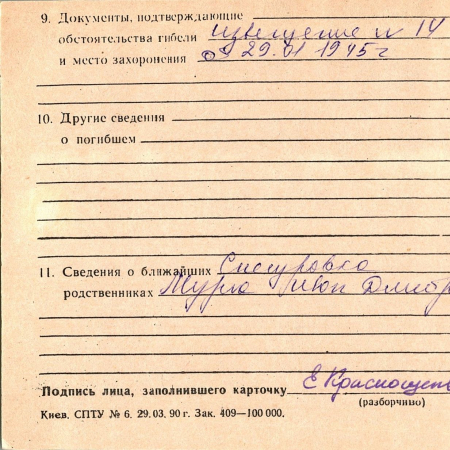 9. Документы, подтверждающие
обстоятельства гибели извещение N 14
и место захоронения от 29.01 1945 г
10. Другие сведения
о погибшем
11. Сведения о ближайших Снегуровка
родственниках Мурга
Подпись лица, заполнившего карточку Е Краснощек
(разборчиво)
Киев. СПТУ № 6. 29.03. 90 г. Зак. 409—100 000.